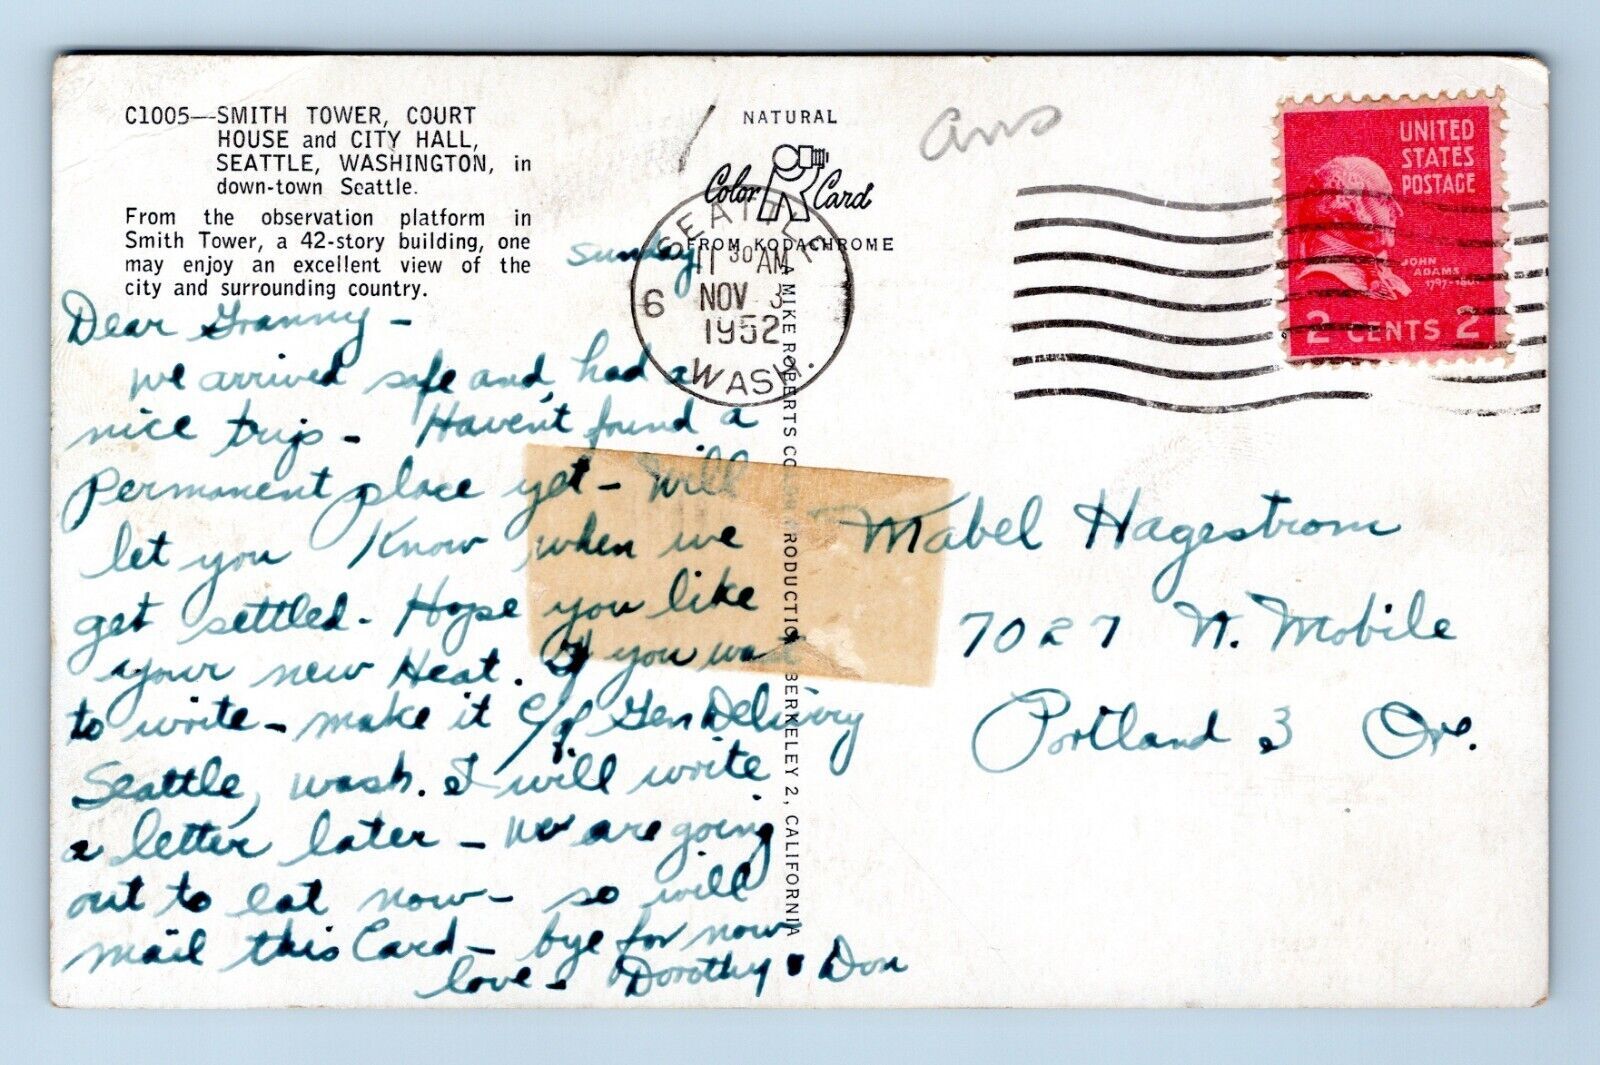 C1005—SMITH TOWER, COURT
HOUSE and CITY HALL,
SEATTLE, WASHINGTON, in
down-town Seattle.
From the observation platform in
Smith Tower, a 42-story building, one
may enjoy an excellent view of the
city and surrounding country.
NATURAL
Color Card
FROM KODACHROME
Ans
SEATTLE
11 30 AM
6 NOV 3
1952
WASH.
UNITED
STATES
POSTAGE
JOHN
ADAMS
1797-1801
2 CENTS 2
A MIKE ROBERTS COLOR PRODUCTION BERKELEY 2, CALIFORNIA
Sunday
Dear Granny -
We arrived safe and, had a
nice trip - Haven't found a
permanent place yet - Will
let you Know when we
get settled. Hope you like
your new Heat. If you want
to write - make it c/o Gen Delivery
Seattle, Wash. I will write
a letter later - We are going
out to eat now - so will
mail this Card - bye for now
love - Dorothy & Don
Mabel Hagestrom
7027 N. Mobile
Portland 3 Ore.